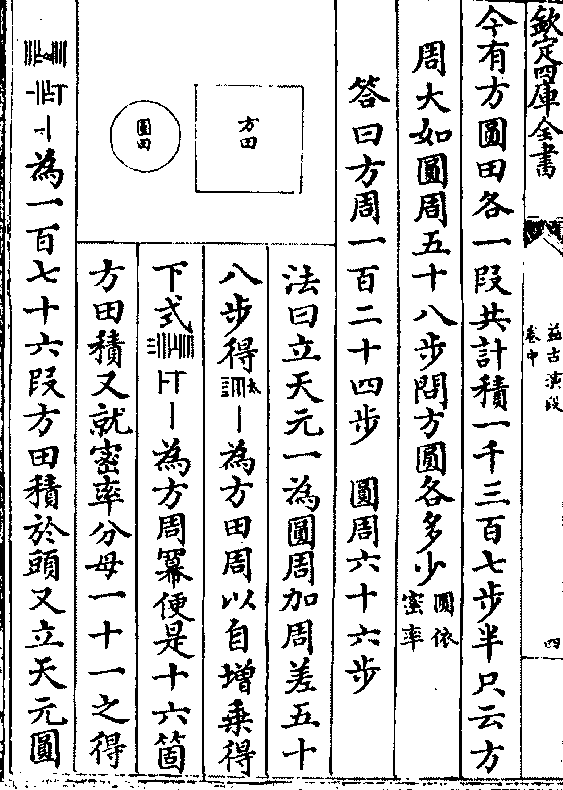 欽定四庫全書
益古演段
卷中
四
今有方圓田各一段共計積一千三百七步半只云方
周大如圓周五十八步問方圓各多少圓依密率
答曰方周一百二十四步 圓周六十六步
方田
圓田
法曰立天元一為圓周加周差五十
八步得太為方田周以自增乗得
下式為方周冪便是十六箇
方田積又就密率分母一十一之得
為一百七十六段方田積於頭又立天元圓